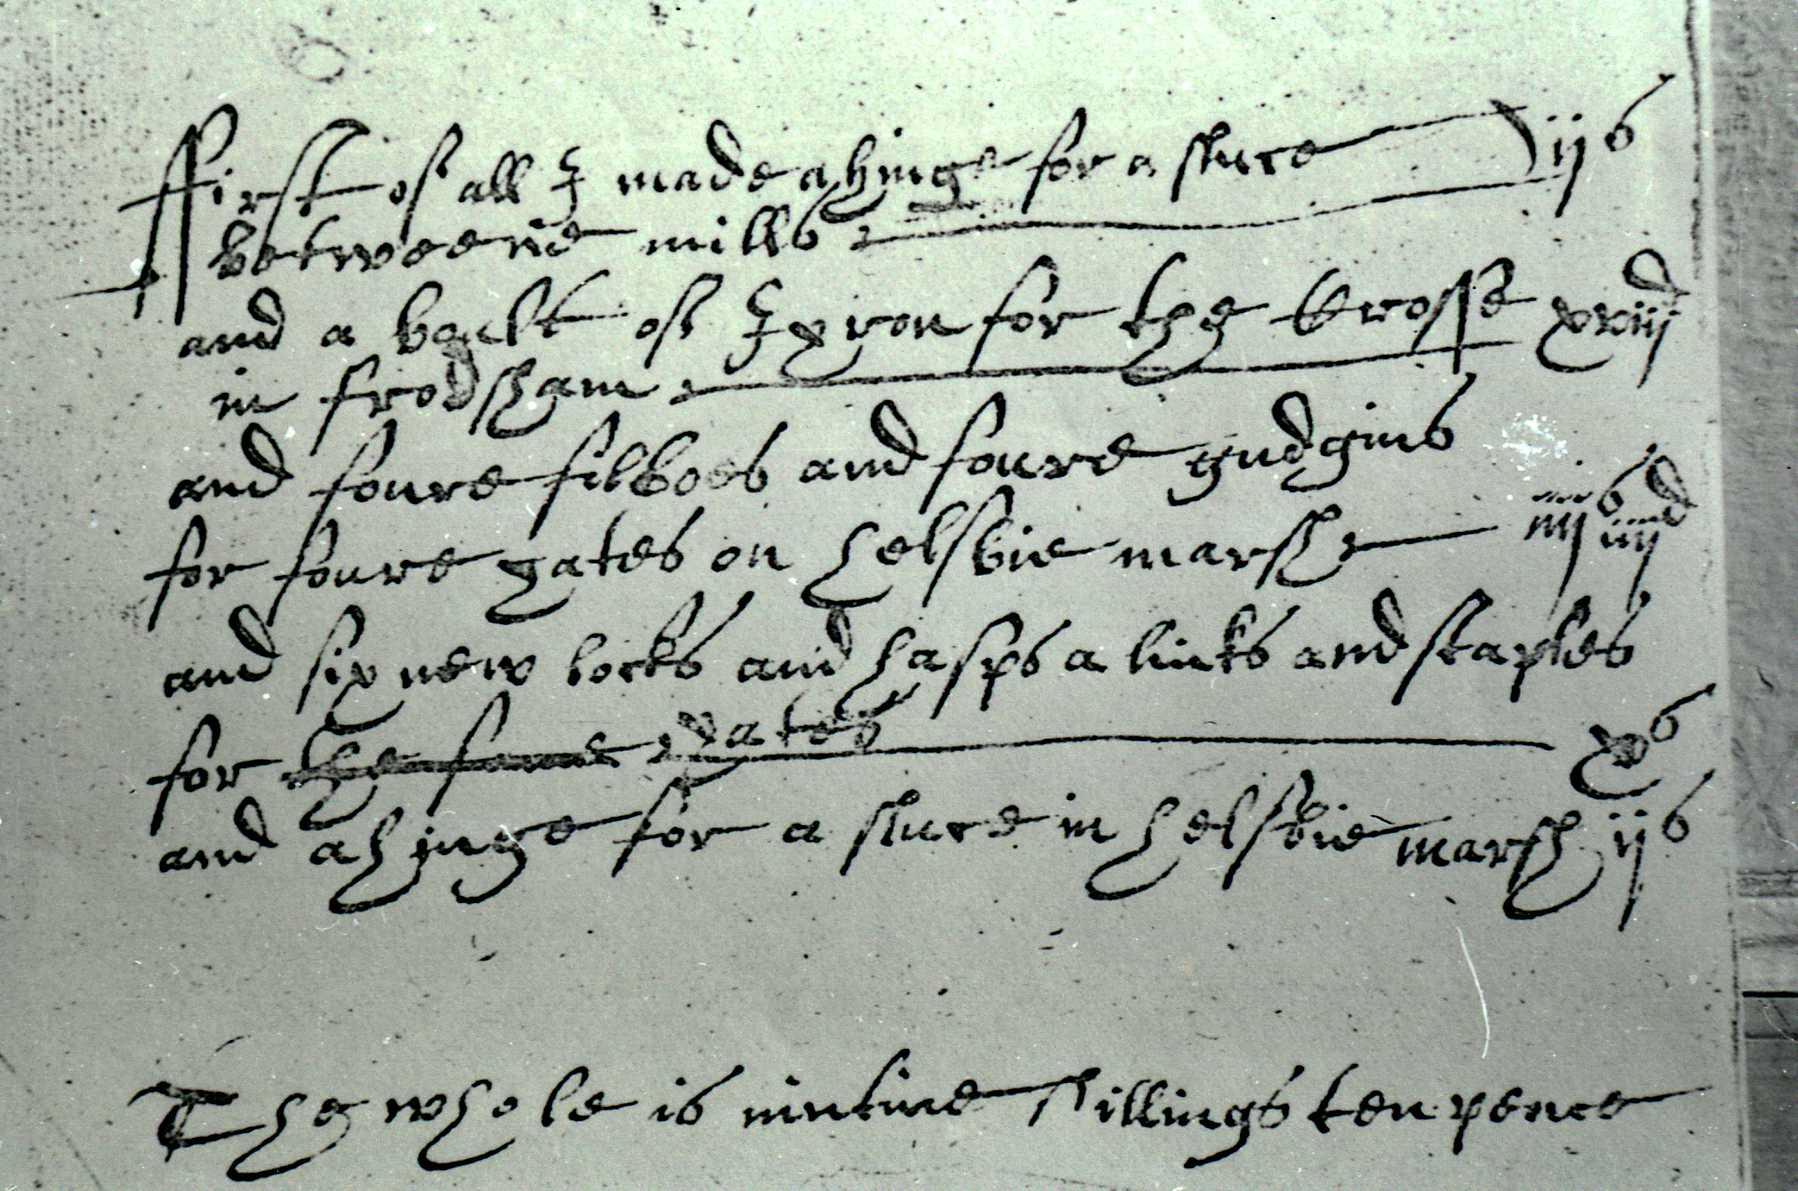 ffirst of all I made a hinge for a sluce ijs
betweene mills
and a boult of Iyron for the Crosse xviijd
in frodsham
and foure and foure gudgins
for foure gates on helsbie marsh iiijs iiijd
and six new locks and hasps a links and staples
for the same gates xs
and a hinge for a sluce in helsbie marsh ijs
The whole is nintine shillings ten pence